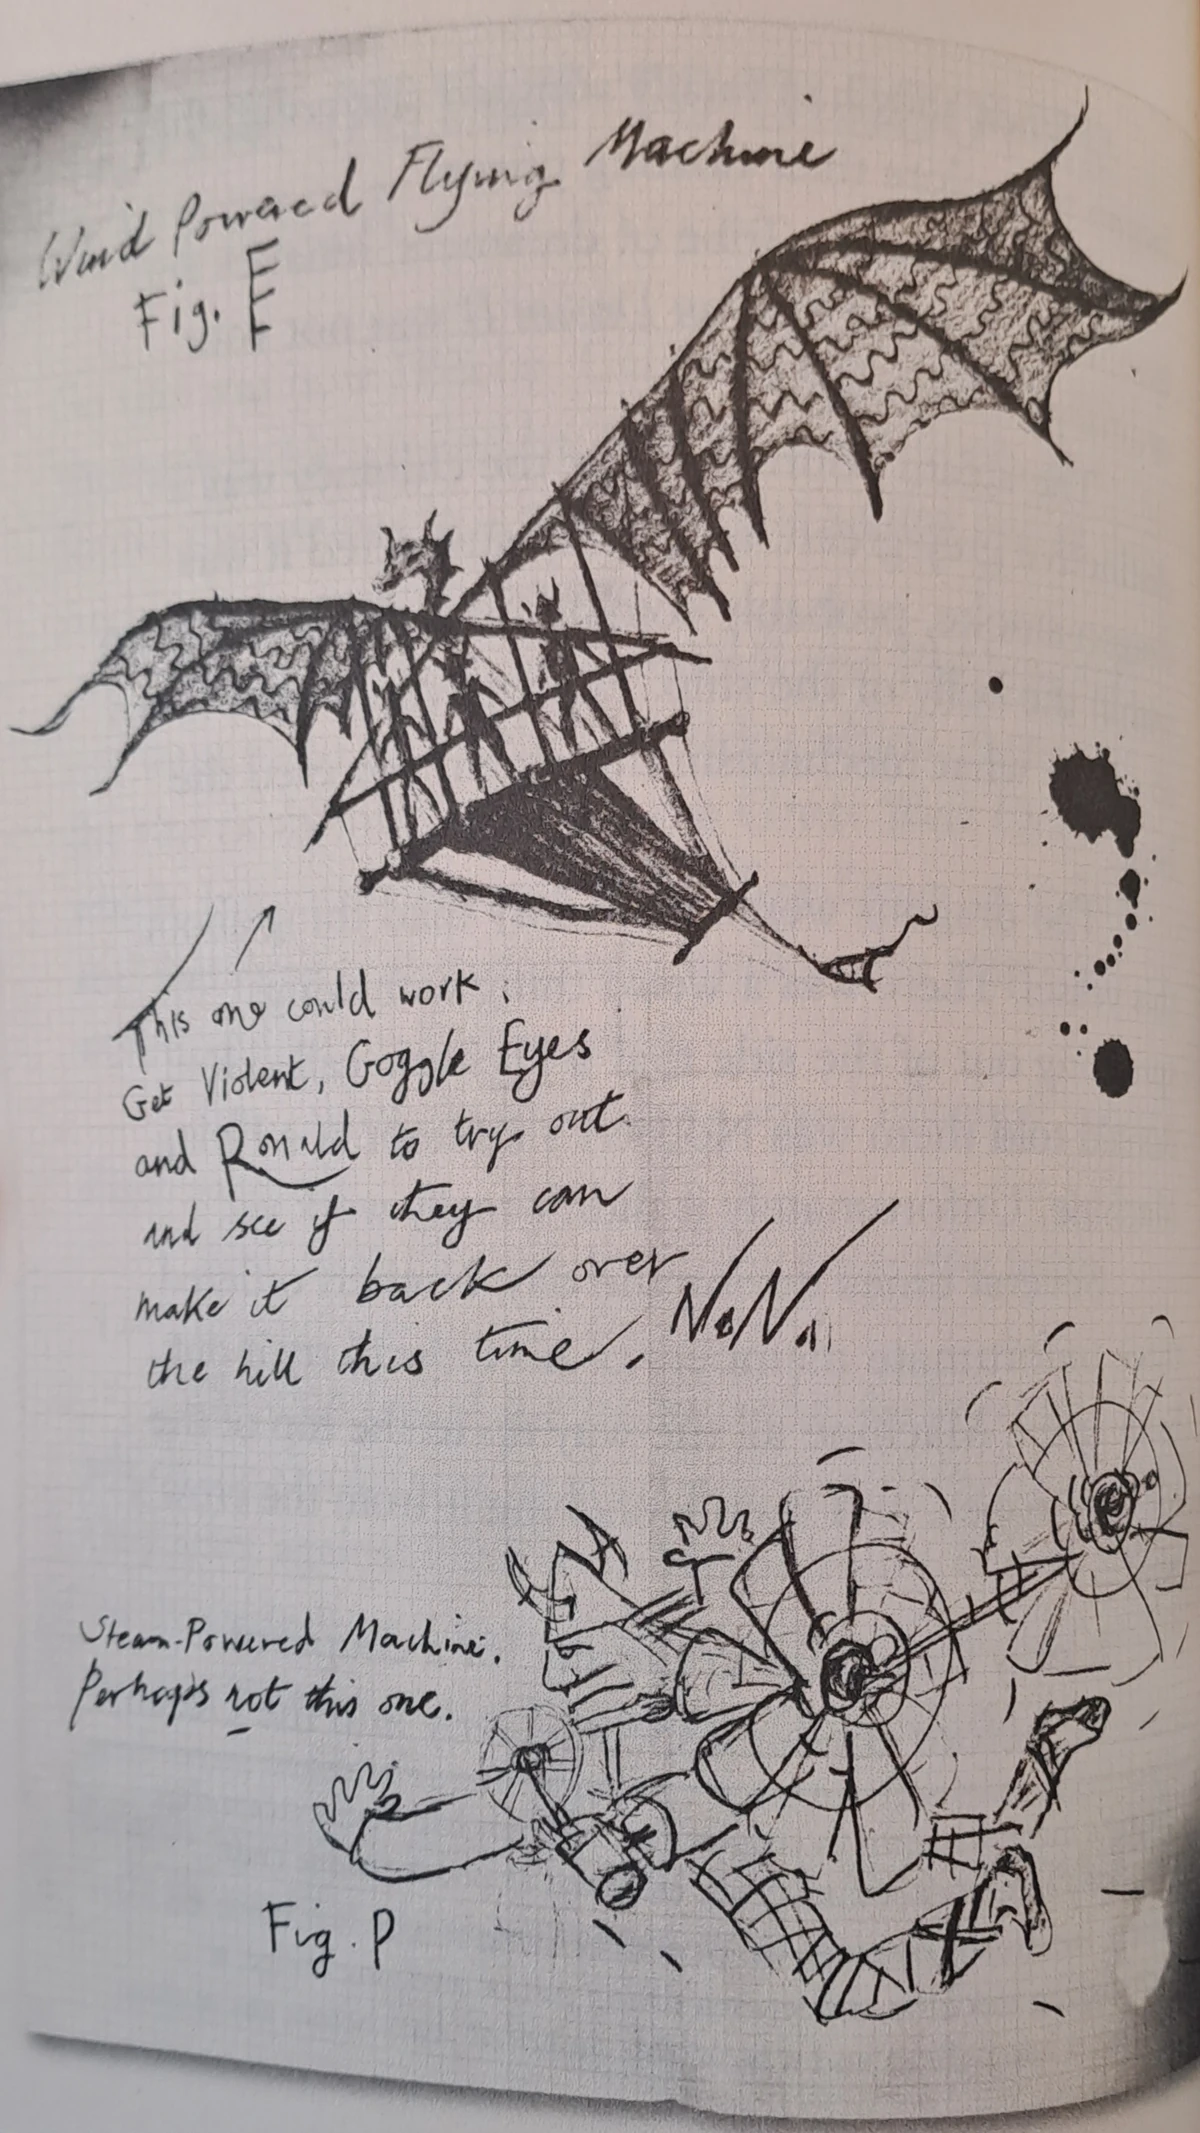 Wind Powered Flying Machine
Fig. E
This one could work.
Get Violent, Goggle Eyes
and Ronald to try out
and see if they can
make it back over
the hill this time.
Steam-Powered Machine.
Perhaps not this one.
Fig. P